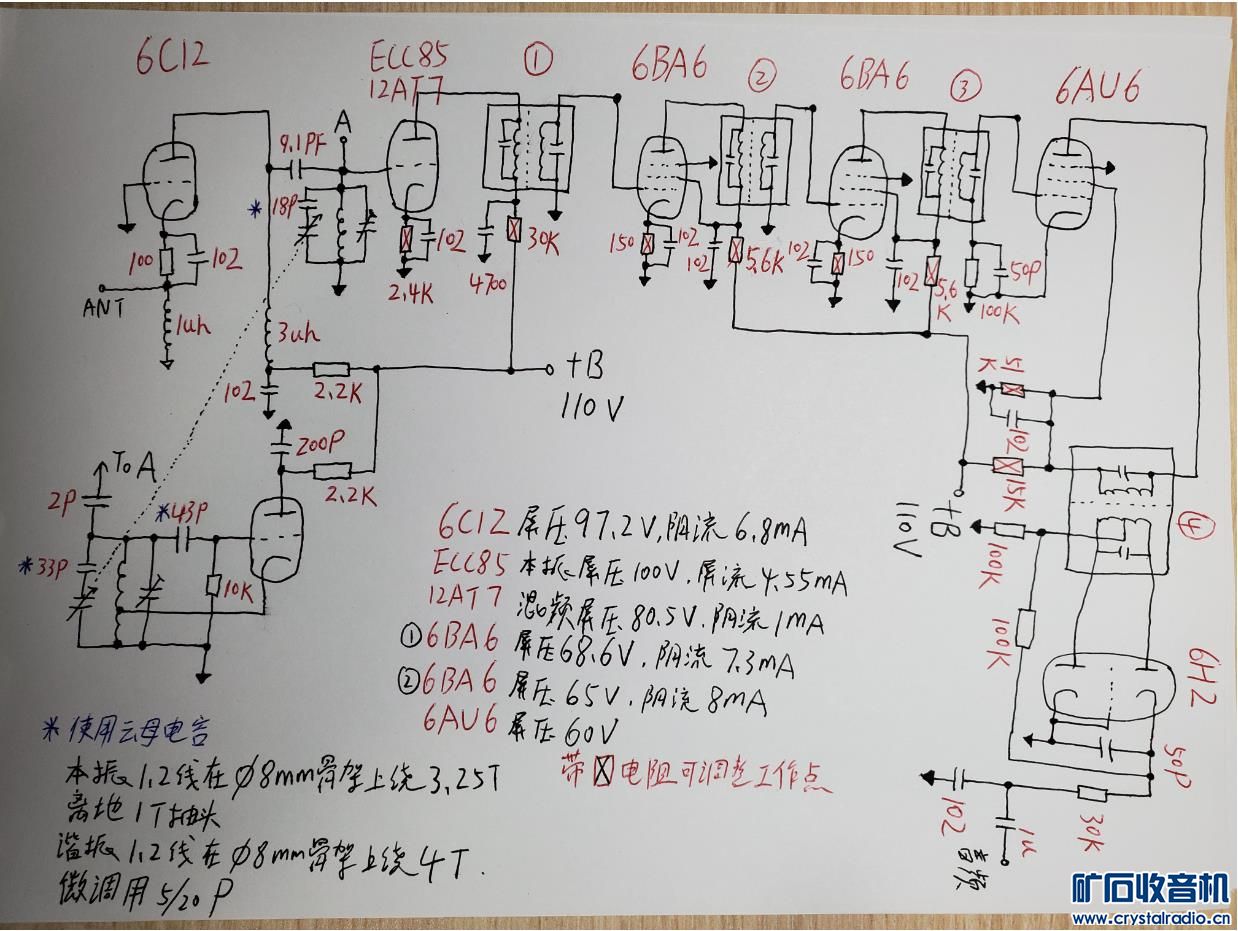 6C12
ECC85
12AT7
①
6BA6
②
6BA6
③
6AU6
A
9.1PF
*
18P
100
102
ANT
1uh
3uh
102
2.4K
4700
30K
150
102
102
5.6K
102
150
102
5.6
K
50P
100K
102
2.2K
+B
110V
200P
2.2K
To A
2P
*43P
*33P
10K
51
K
102
15K
+B
110V
100K
④
100K
6H2
50P
30K
102
1u
音频
6C12 屏压97.2V,阴流6.8mA
ECC85 本振屏压100V,屏流4.55mA
12AT7 混频屏压80.5V,阴流1mA
①6BA6 屏压68.6V,阴流7.3mA
②6BA6 屏压65V,阴流8mA
6AU6 屏压60V
带 电阻可调整工作点
*使用云母电容
本振1.2线在Ø8mm骨架上绕3.25T
离地1T抽头
谐振1.2线在Ø8mm骨架上绕4T.
微调用5/20P
矿石收音机
www.crystalradio.cn